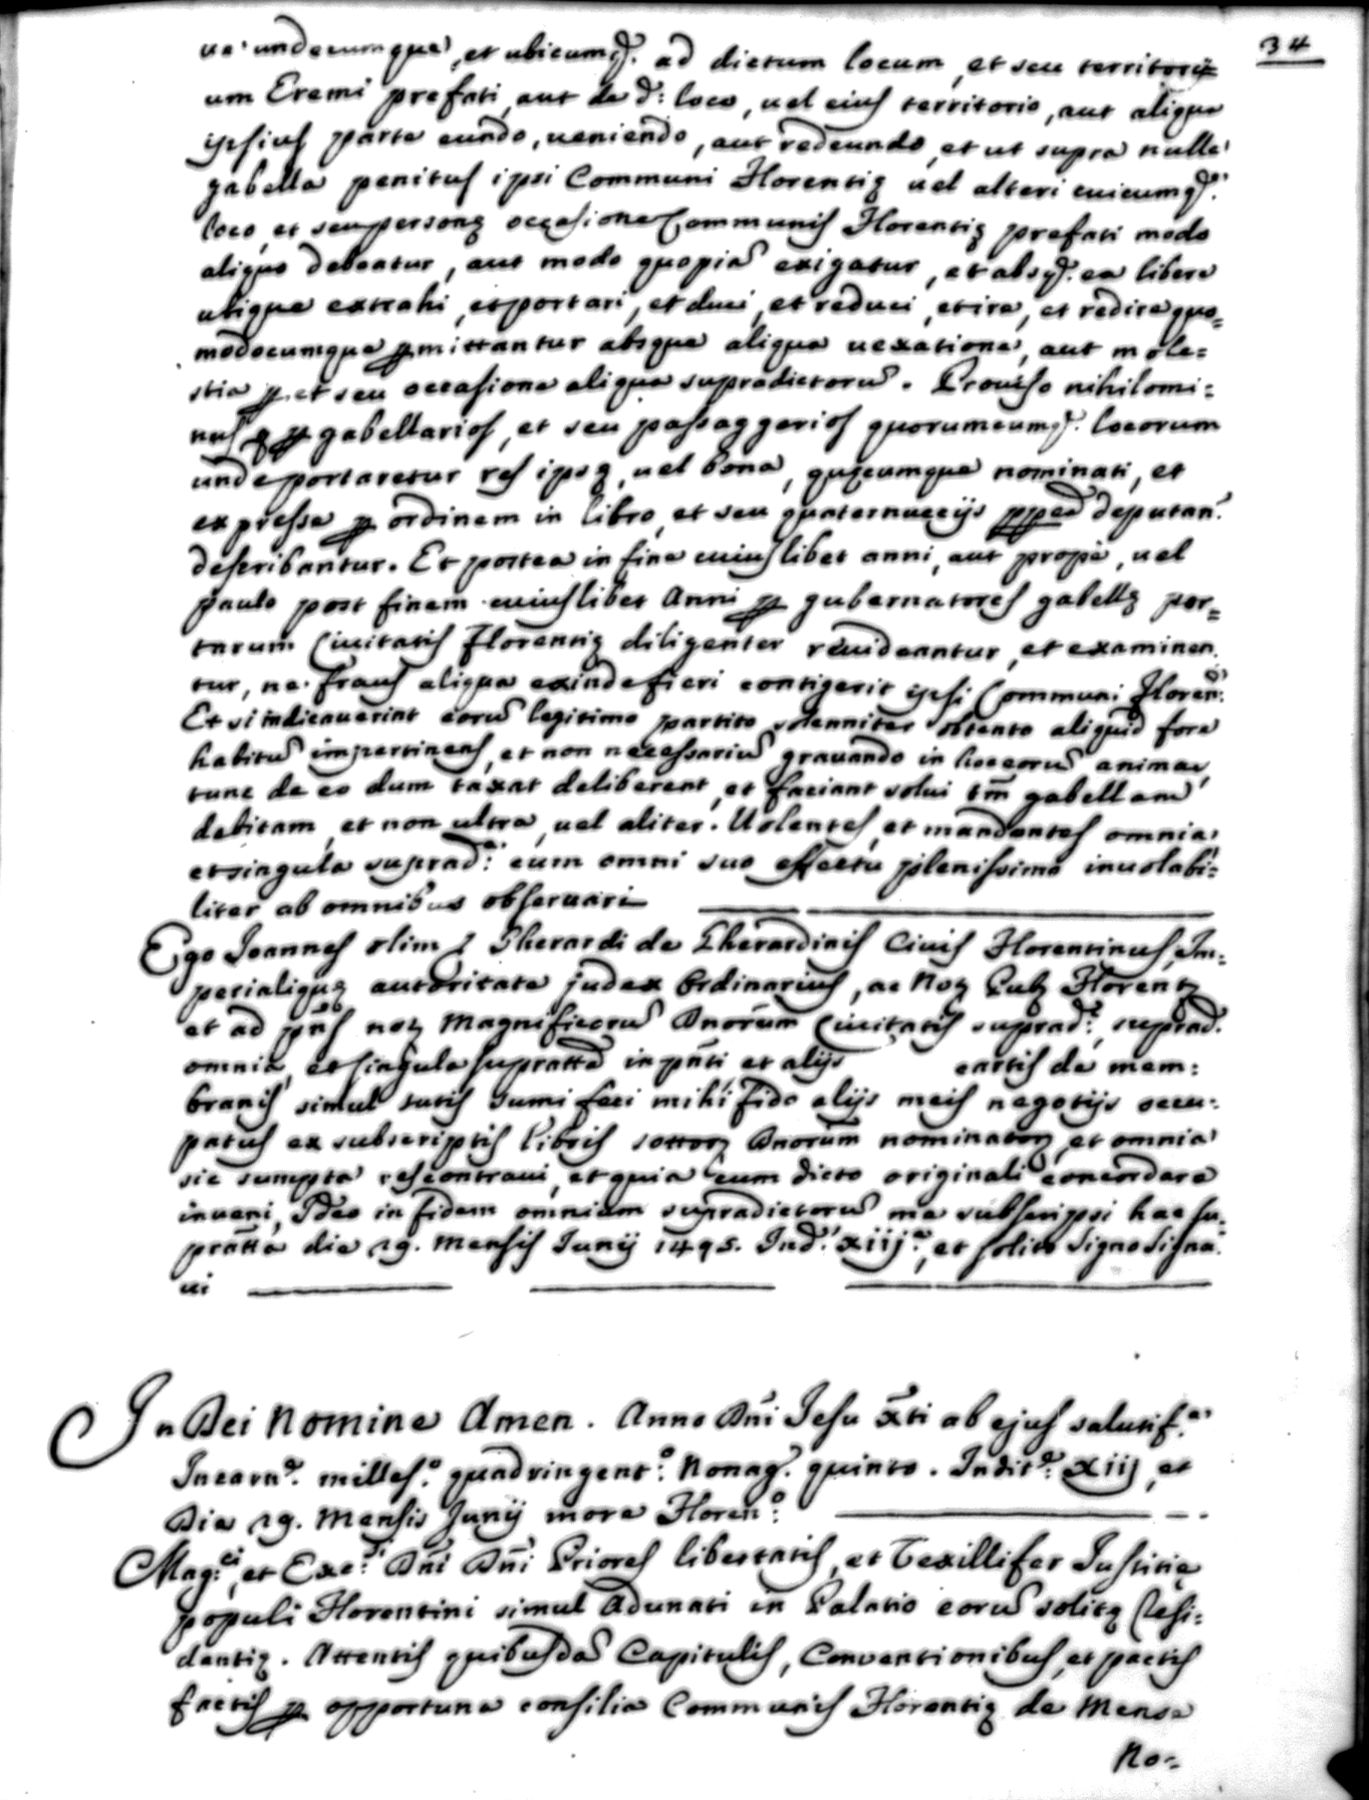 34
ue undecumque, et ubicumq. ad dictum locum, et seu territorij
um Eremi prefati, aut de d: loco, uel eius territorio, aut aliqua
ipsius parte eundo, ueniendo, aut redeundo, et ut supra nulla
gabella penitus ipsi Communi Florentię uel alteri cuicumq.
loco, et seu personę occasione Communis Florentię prefati modo
aliquo debeatur, aut modo quopiā exigatur, et absq. ea libere
ubique extrahi, et portari, et duci, et reduci, et ire, et redire quo=
modocumque ꝑmittantur absque aliqua uexatione, aut mole=
stia ꝑ. et seu occasione aliqua supradictorū. Prouiso nihilomi=
nus ꝙ ꝑ gabellarios, et seu passaggerios quorumcumq. locorum
unde portaretur res ipsę, uel bona, quęcumque nominati, et
expresse ꝑ ordinem in libro, et seu quaternuccijs ꝑꝑea deputan.
describantur. Et postea in fine cuiuslibet anni, aut propè, uel
paulo post finem cuiuslibet Anni ꝑ gubernatores gabellę por=
tarum Ciuitatis Florentię diligenter reuideantur, et examinen
tur, ne fraus aliqua exinde fieri contigerit ipsi Communi Floren:
Et si indicauerint eorū legitimo partito solenniter obtento aliquid fore
habitū impertinens, et non necessariū grauando in hoc eorū animas,
tunc de eo dum taxat deliberent, et faciant solui tm̄ gabellam
debitam, et non ultra, uel aliter. Uolentes, et mandantes omnia,
et singula suprad: cum omni suo effectu plenissime inuolabi=
liter ab omnibus obseruari
Ego Joannes olim ꝭ Gherardi de Gherardinis Ciuis Florentinus, Im=
perialiquę autoritate judex Ordinarius, ac Notꝫ Pubꝫ Florentꝫ
et ad pn̄s notꝫ Magnificorū Dnorum Ciuitatis suprad:, suprad.
omnia, et singula suprattā in pn̄ti, et alijs cartis de mem=
branis simul sutis sumi feci mihi fido alijs meis negotijs occu=
patus ex subscriptis libris sottorꝫ Dnorum nominatorꝫ, et omnia
sic sumpta rescontraui, et quia cum dicto originali concordare
inueni, Ideo in fidem omnium supradictorū me subscripsi hac su=
prattā die 29. Mensis Junij 1495. Ind: xiij:, et solito signo signa=
ui
In Dei Nomine Amen. Anno Dn̄i Jesu x̄ti ab ejus salutif:
Incarn. milles.o quadringent:o Nonag. quinto. Indit: xiij, et
Die 29. Mensis Junij more Floren:o
Mag:ci, et Exc:si Dn̄i Dn̄i Priores libertatis, et Vexillifer Justitię
populi Florentini simul Adunati in Palatio eorū solitę Resi=
dentię. Attentis quibusdā Capitulis, Conventionibus, et pactis
factis ꝑ opportuna consilia Communis Florentię de Mense
No=